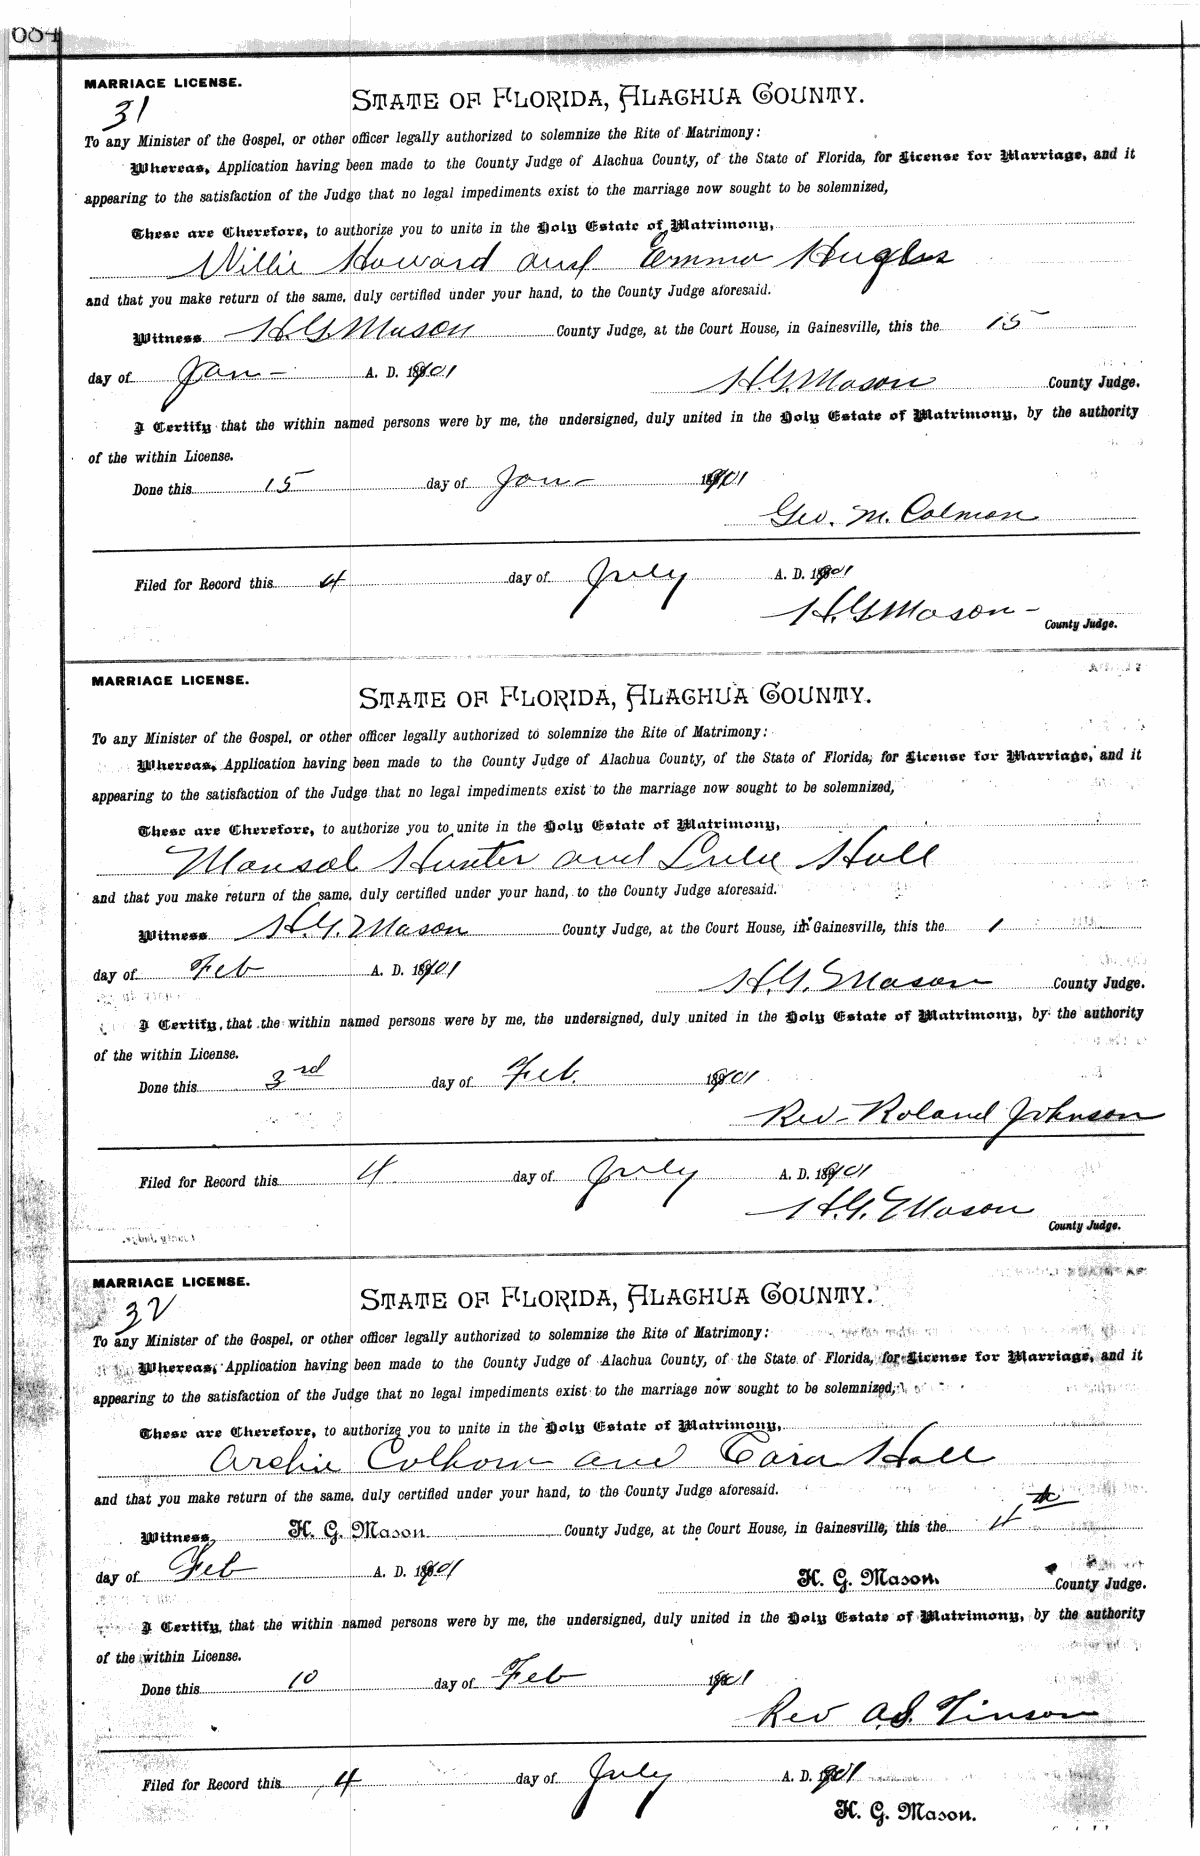 684
MARRIAGE LICENSE.
31
STATE OF FLORIDA, ALACHUA COUNTY.
To any Minister of the Gospel, or other officer legally authorized to solemnize the Rite of Matrimony:
Whereas, Application having been made to the County Judge of Alachua County, of the State of Florida, for License for Marriage, and it
appearing to the satisfaction of the Judge that no legal impediments exist to the marriage now sought to be solemnized,
These are Therefore, to authorize you to unite in the Holy Estate of Matrimony,
Willie Howard and Emma Hughes
and that you make return of the same, duly certified under your hand, to the County Judge aforesaid.
Witness H. G. Mason County Judge, at the Court House, in Gainesville, this the 15
day of Jan - A. D. 1901 H. G. Mason County Judge.
I Certify that the within named persons were by me, the undersigned, duly united in the Holy Estate of Matrimony, by the authority
of the within License.
Done this 15 day of Jan - 1901
Geo. M. Colman
Filed for Record this 4 day of July A. D. 1901
H. G. Mason -
County Judge.
MARRIAGE LICENSE.
STATE OF FLORIDA, ALACHUA COUNTY.
To any Minister of the Gospel, or other officer legally authorized to solemnize the Rite of Matrimony:
Whereas, Application having been made to the County Judge of Alachua County, of the State of Florida, for License for Marriage, and it
appearing to the satisfaction of the Judge that no legal impediments exist to the marriage now sought to be solemnized,
These are Therefore, to authorize you to unite in the Holy Estate of Matrimony,
Mansol Hunter and Lulie Hall
and that you make return of the same, duly certified under your hand, to the County Judge aforesaid.
Witness H. G. Mason County Judge, at the Court House, in Gainesville, this the 1
day of Feb A. D. 1901 H. G. Mason County Judge.
I Certify, that the within named persons were by me, the undersigned, duly united in the Holy Estate of Matrimony, by the authority
of the within License.
Done this 3rd day of Feb. 1901
Rev - Roland Johnson
Filed for Record this 4 day of July A. D. 1901
H. G. Mason
County Judge.
MARRIAGE LICENSE.
32
STATE OF FLORIDA, ALACHUA COUNTY.
To any Minister of the Gospel, or other officer legally authorized to solemnize the Rite of Matrimony:
Whereas, Application having been made to the County Judge of Alachua County, of the State of Florida, for License for Marriage, and it
appearing to the satisfaction of the Judge that no legal impediments exist to the marriage now sought to be solemnized,
These are Therefore, to authorize you to unite in the Holy Estate of Matrimony,
Archie Colhoun and Cora Hall
and that you make return of the same, duly certified under your hand, to the County Judge aforesaid.
Witness H. G. Mason County Judge, at the Court House, in Gainesville, this the 4th
day of Feb A. D. 1901 H. G. Mason. County Judge.
I Certify, that the within named persons were by me, the undersigned, duly united in the Holy Estate of Matrimony, by the authority
of the within License.
Done this 10 day of Feb 1901
Rev A. S. Vinson
Filed for Record this 4 day of July A. D. 1901
H. G. Mason.